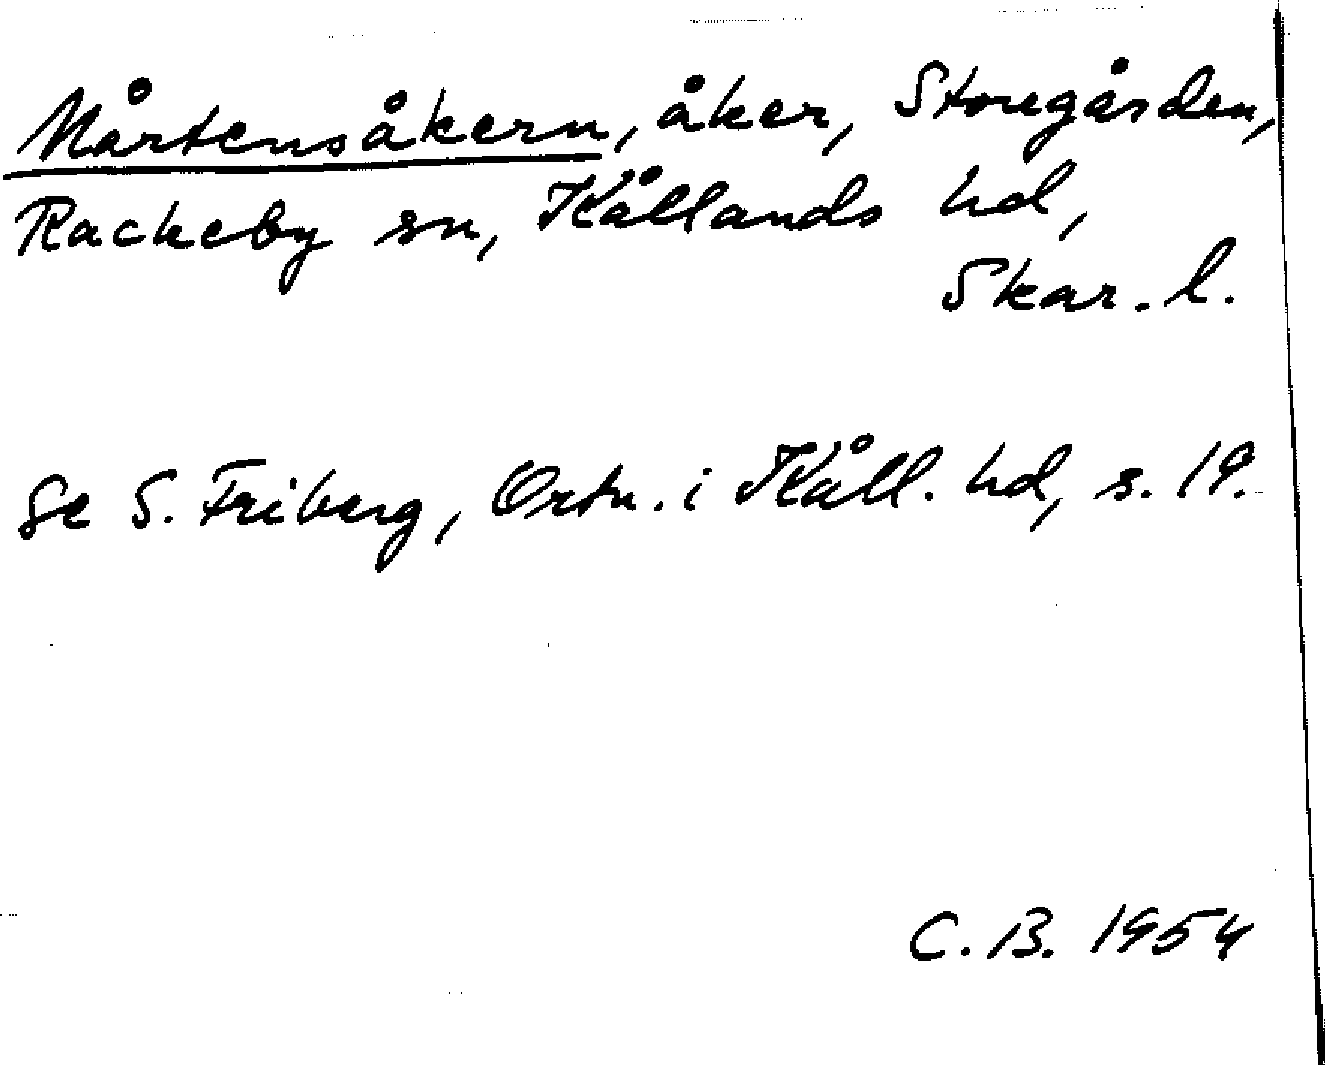 Mårtensåkern, åker, Storegården,
Rackeby sn, Kållands hd,
Skar. l.
Se S. Friberg, Ortn. i Kåll. hd, s. 19.
C. B. 1954